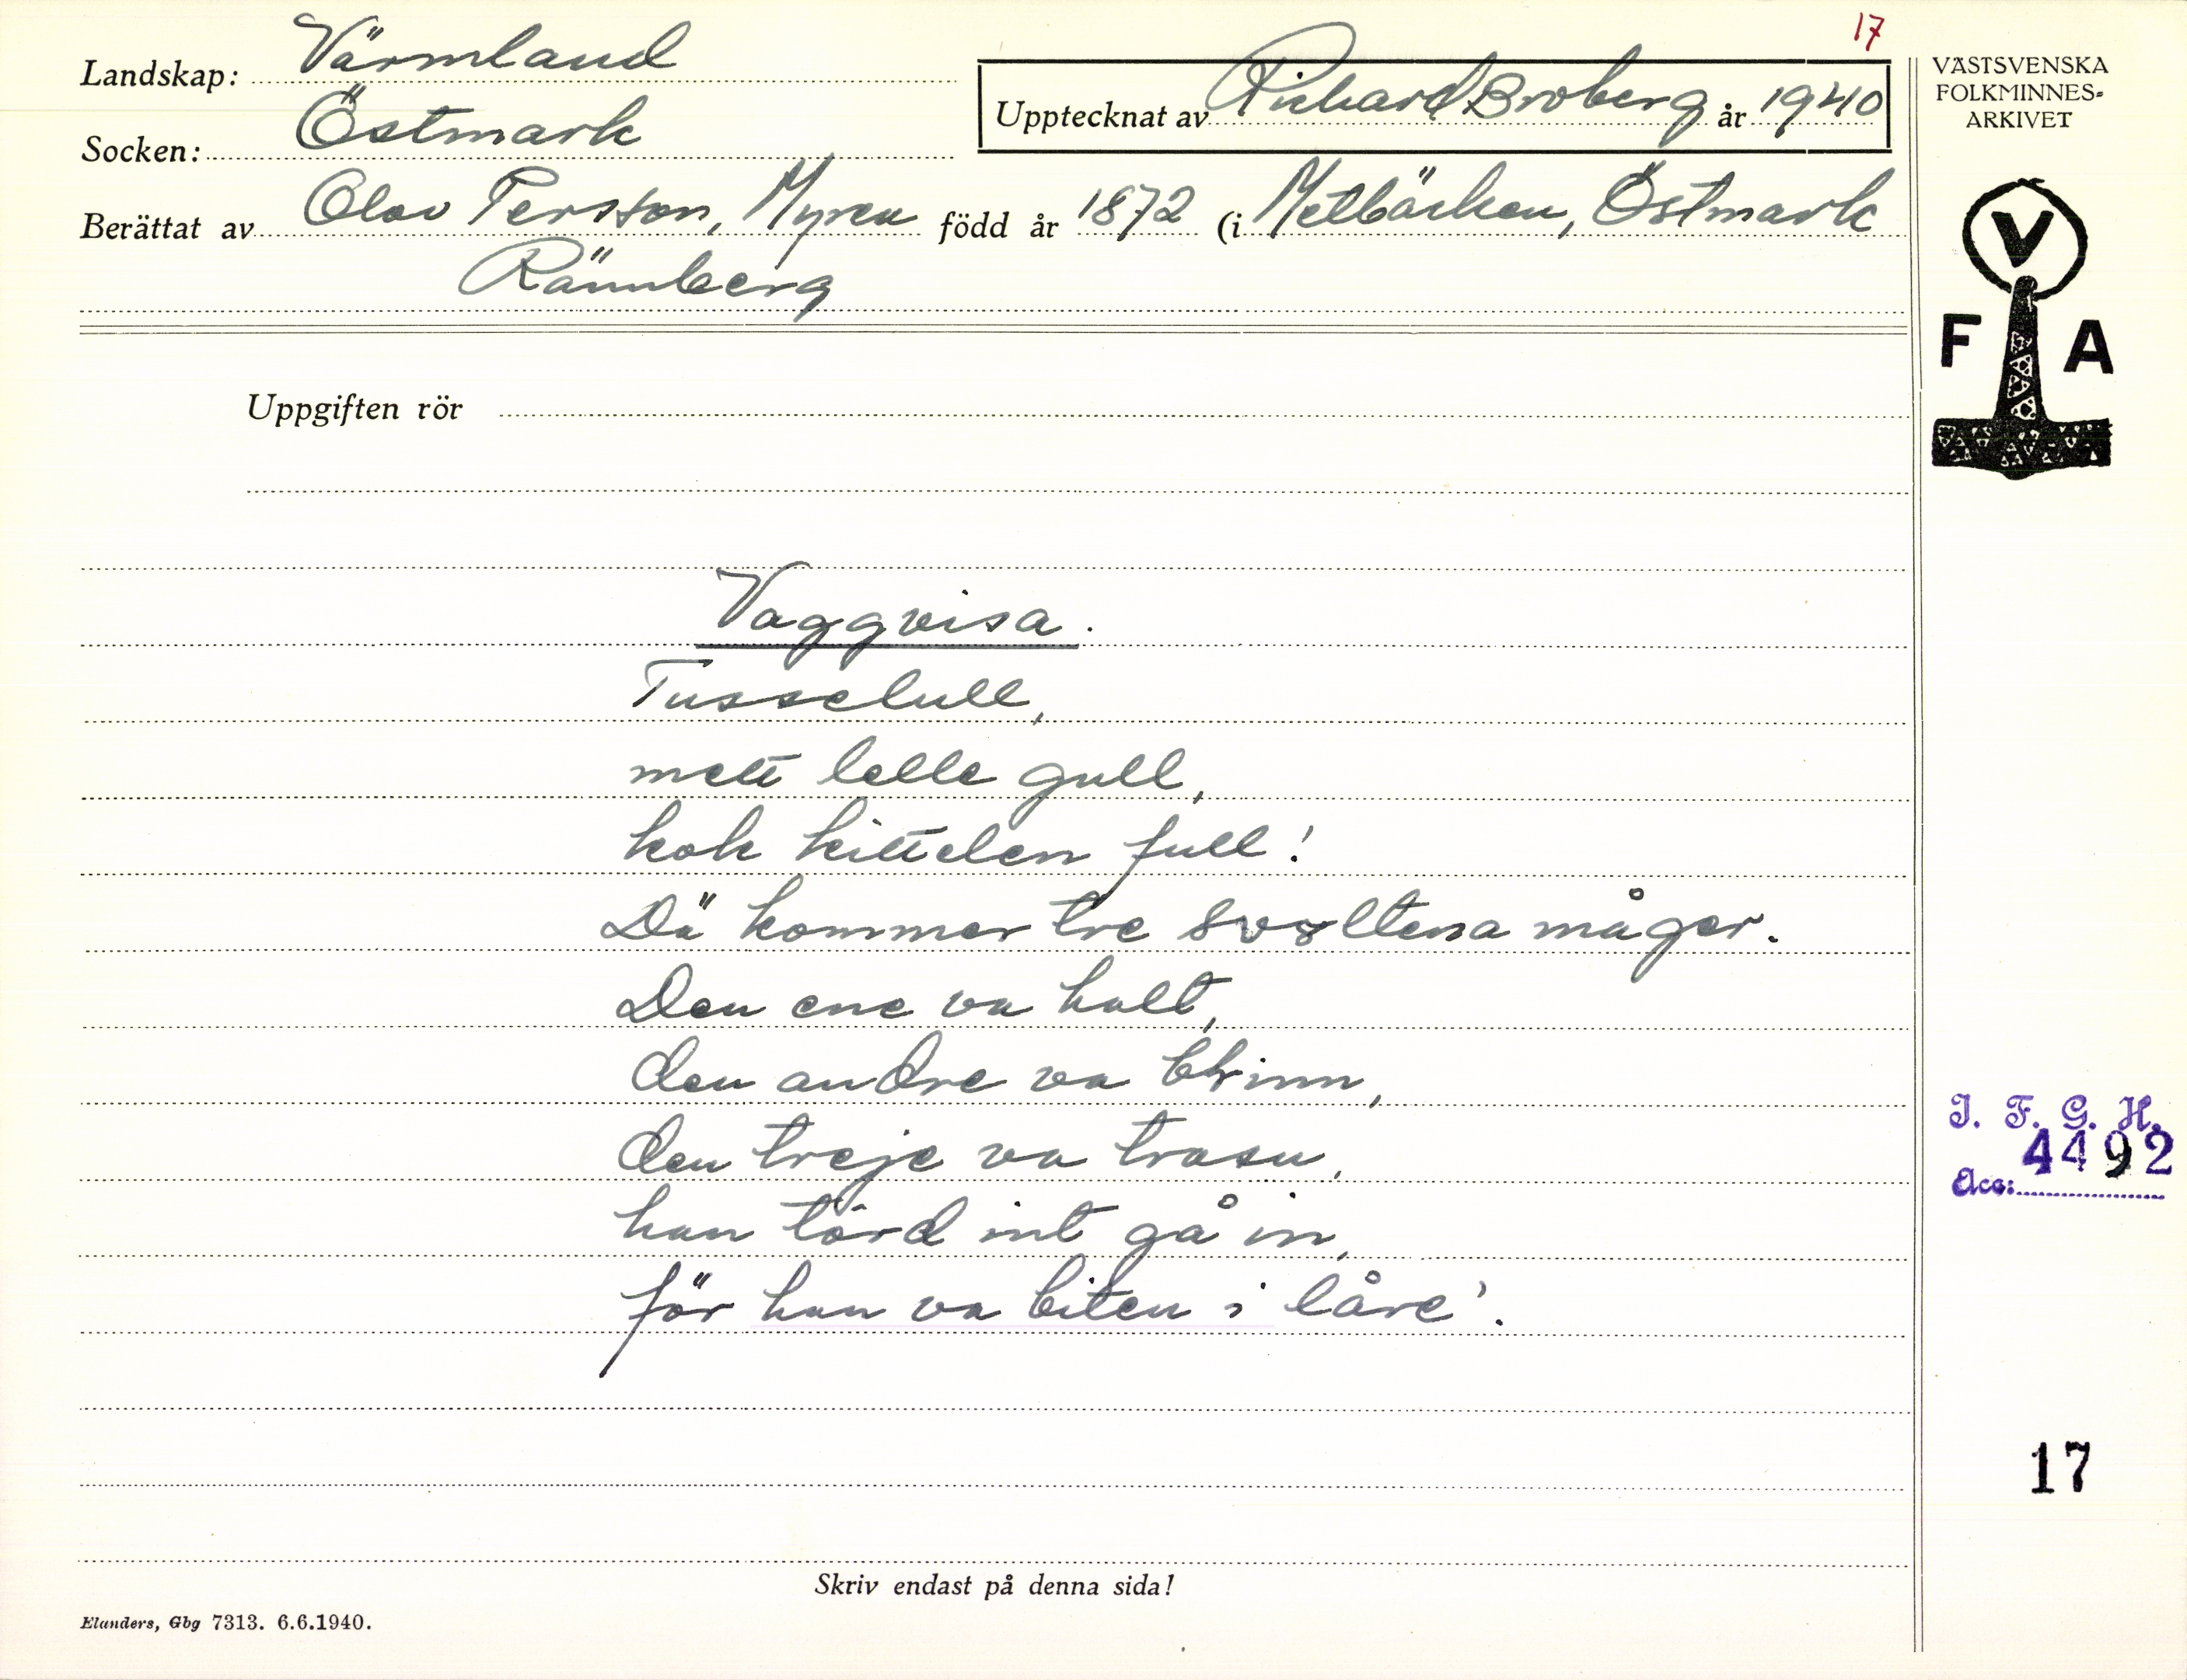 17
Landskap: Värmland
Socken: Östmark
Upptecknat av Richard Broberg år 1940
Berättat av Olov Persson, Myren född år 1872 (i Metbäcken, Östmark
Rännberg
VÄSTSVENSKA
FOLKMINNES-
ARKIVET
V
F A
Uppgiften rör
Vaggvisa.
Tusselull,
mett lelle gull,
kok kittelen full!
Dä kommer tre svoltena måger.
Den ene va halt,
den andre va blinn,
den treje va trasu,
han tôrd int gå in,
för han va biten i låre'.
I. F. G. H.
4492
Acc:
17
Skriv endast på denna sida!
Elanders, Gbg 7313. 6.6.1940.